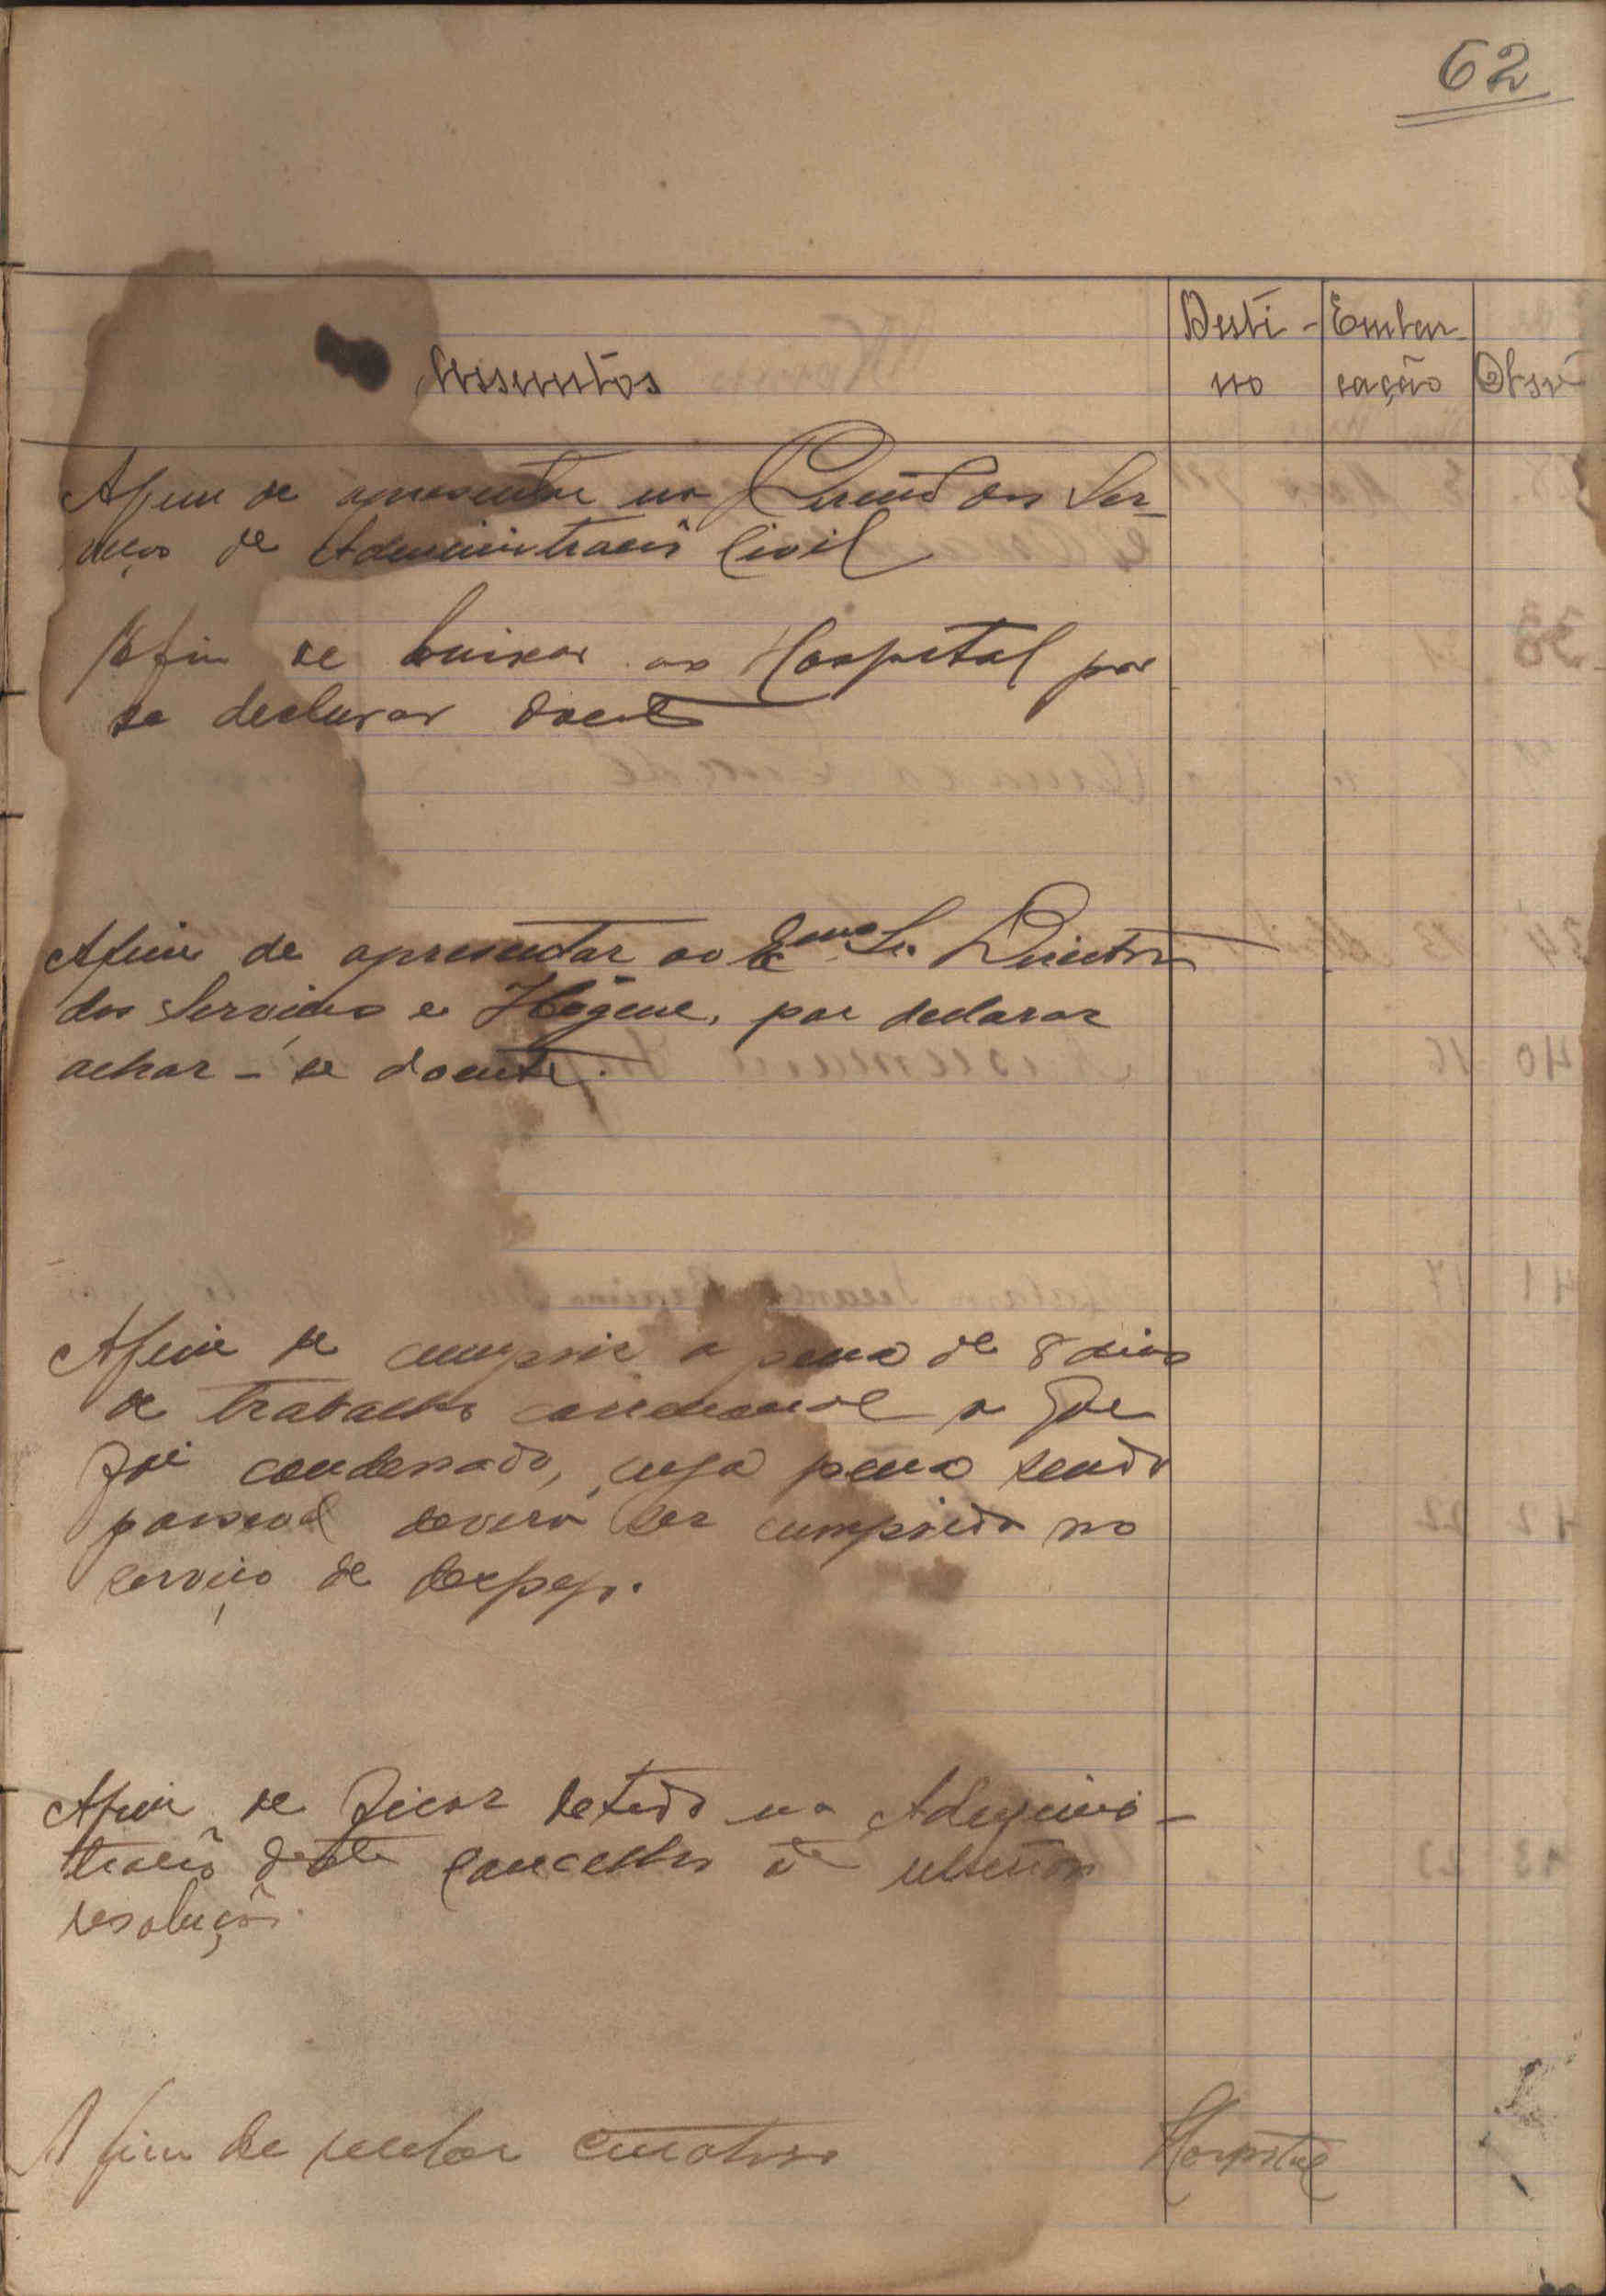 62
Assumtos
Desti-
no
Embar-
cação
Obsrv
Afim de apresentar na dos Ser-
viços de Administracão Civil
Afim de baixar ao Hospital por
se declarar doente
Afim de apresentar ao Exmo Sr. Director
dos Serviços e Hegene, por declarar
achar-se doente.
Afim de cumprir a pena de 8 dias
de trabalho a que
foi condenado, cuja pena sendo
deverá ser cumprida no
serviço de
Afim de ficar detido na Adminis-
tracão deste concelho até ulterior
resolução.
A fim de receber curativo
Hospital